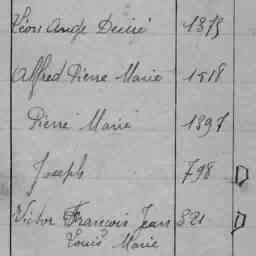 Léon Ange Désiré 1375
Alfred Pierre Marie 1518
Pierre Marie 1397
Joseph 798 D
Victor François Jean 821 D
Louis Marie